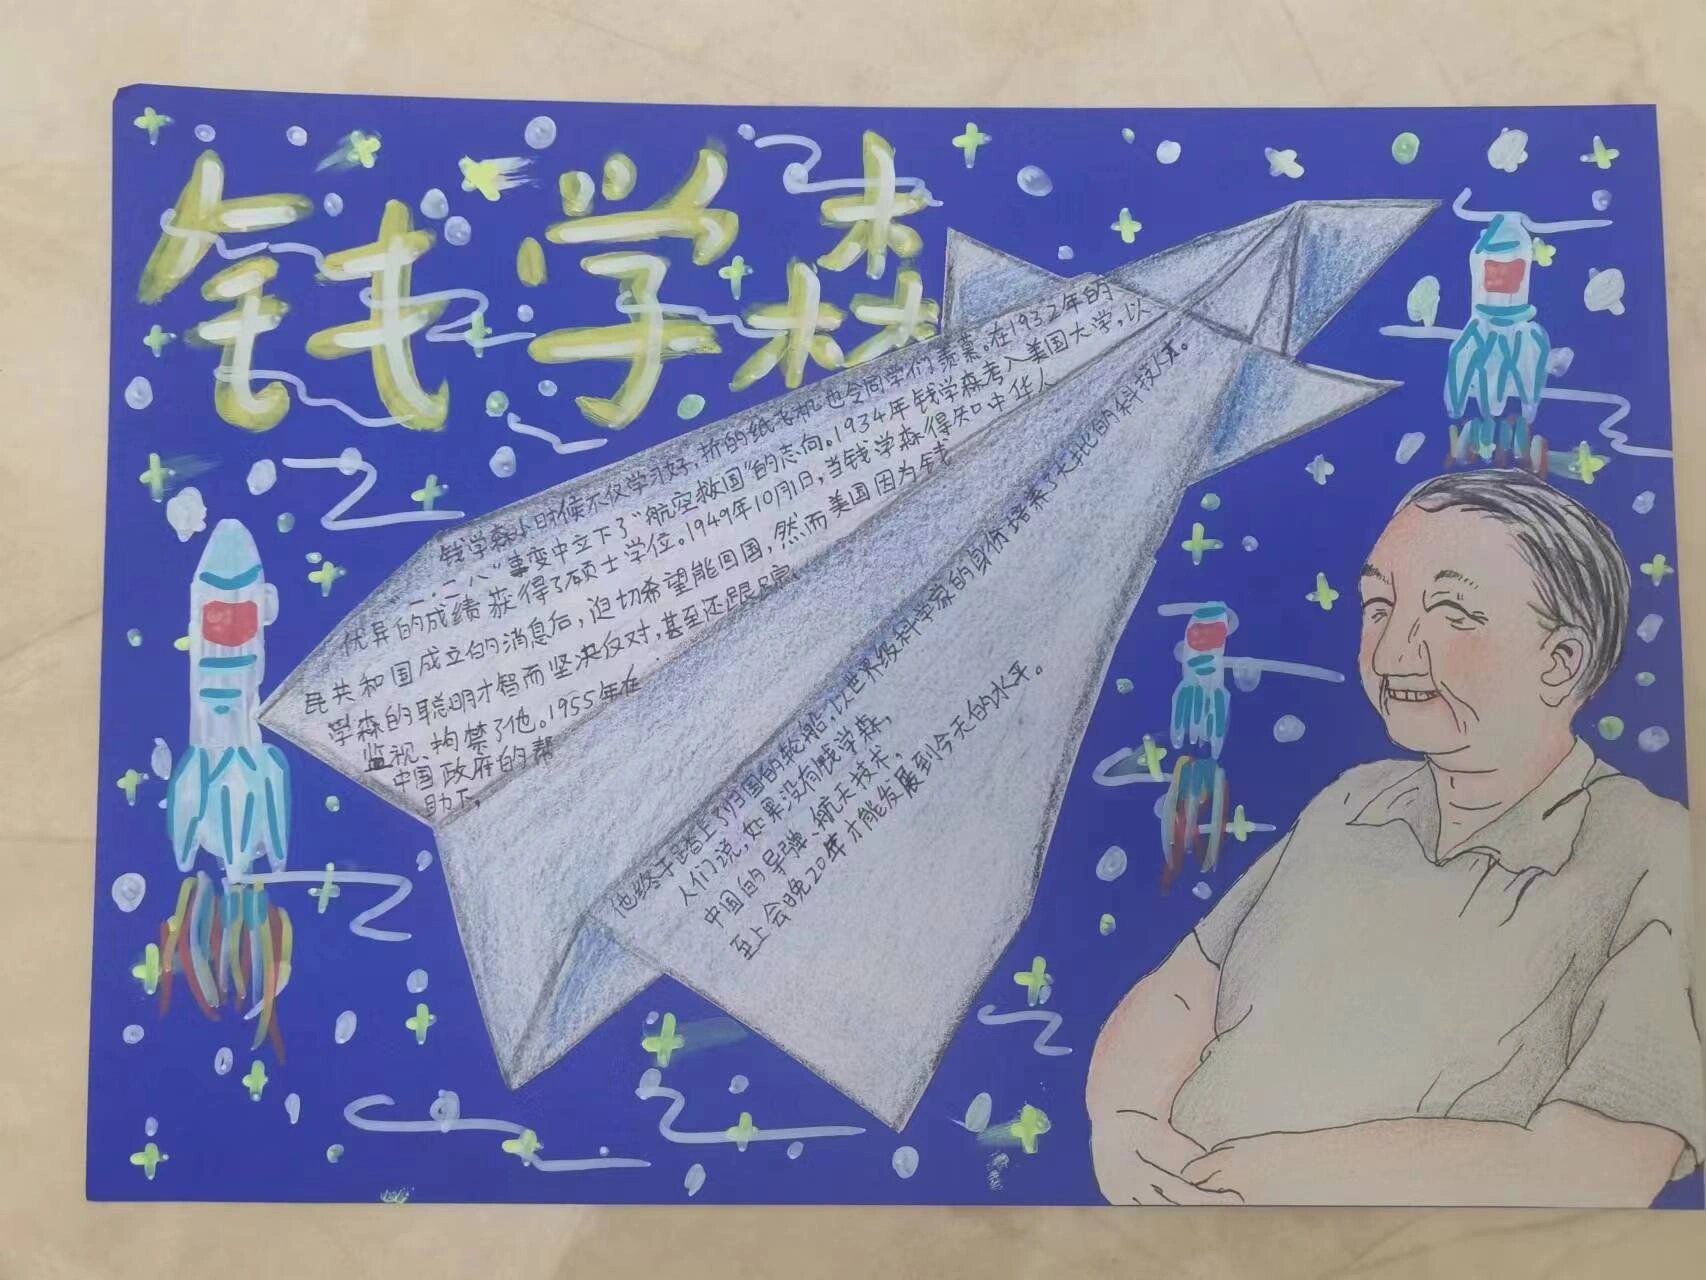 钱学森
钱学森小时候不仅学习好,折的纸飞机也令同学们羡慕。在1932年的
一.二八"事变中立下了"航空救国"的志向。1934年钱学森考入美国大学,以
优异的成绩获得了硕士学位。1949年10月1日,当钱学森得知中华人
民共和国成立的消息后,迫切希望能回国,然而美国因为钱
学森的聪明才智而坚决反对,甚至还跟踪
监视、拘禁了他。1955年在
中国政府的帮
助下,
他终于踏上了归国的轮船,以世界级科学家的身份培养了大批的科技人才。
人们说,如果没有钱学森,
中国的导弹、航天技术,
至少会晚20年才能发展到今天的水平。